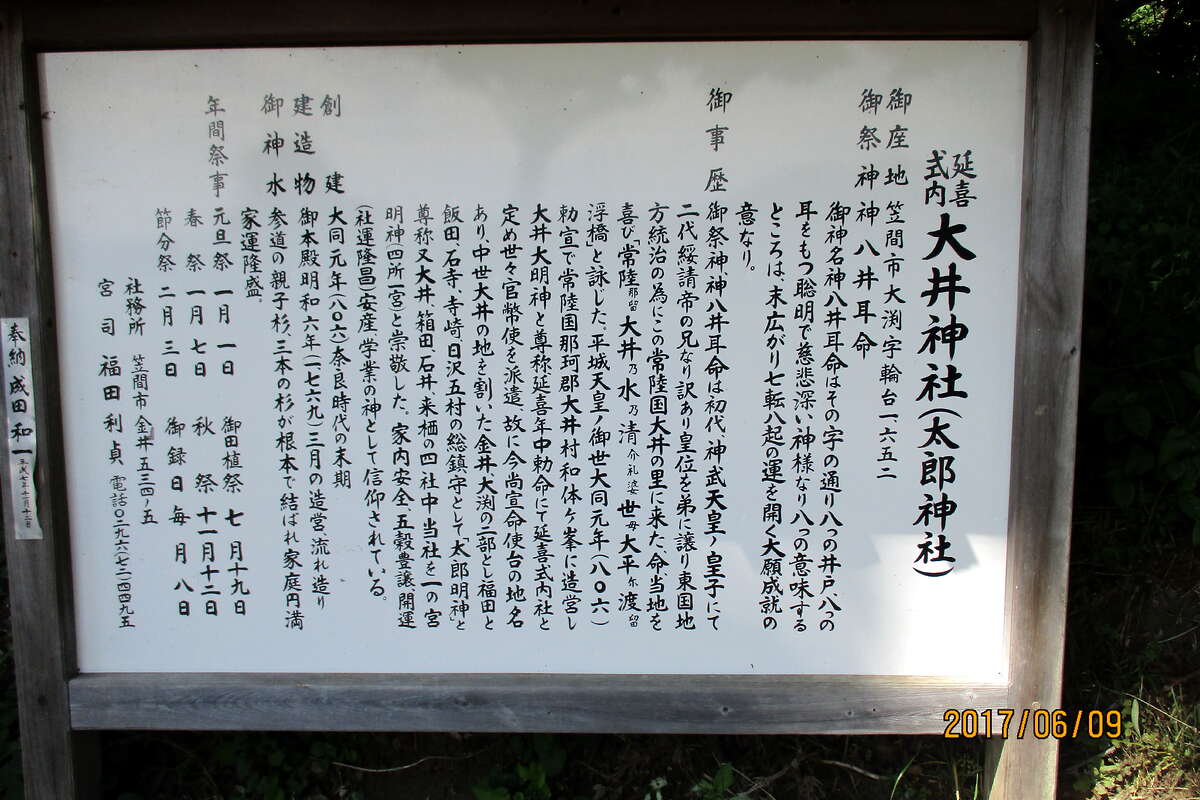 延喜式内 大井神社(太郎神社)
御座地 笠間市大渕字輪台一、六五二
御祭神 神八井耳命
御神名神八井耳命はその字の通り八つの井戸八つの
耳をもつ聡明で慈悲深い神様なり八つの意味する
ところは、末広がり七転八起の運を開く大願成就の
意なり。
御事歴 御祭神神八井耳命は初代神武天皇ノ皇子にて
二代綏請帝の兄なり訳あり皇位を弟に譲り東国地
方統治の為にこの常陸国大井の里に来た、命当地を
喜び「常陸那留大井乃水乃清介礼婆世毎大平尓渡留
浮橋」と詠じた。平城天皇ノ御世大同元年(八〇六)
勅宣で常陸国那珂郡大井村和体ヶ峯に造営し
大井大明神と尊称延喜年中勅命にて延喜式内社と
定め世々官幣使を派遣、故に今尚宣命使台の地名
あり中世大井の地を割いた金井、大渕の二部とし福田と
飯田、石寺、寺崎、日沢五村の総鎮守として「太郎明神」と
尊称又大井、箱田、石井、来栖の四社中当社を一の宮
明神四所一宮)と崇敬した。家内安全、五穀豊譲開運
(社運隆昌)安産、学業の神として信仰されている。
創建 大同元年(八〇六)奈良時代の末期
建造物 御本殿明和六年(一七六九)三月の造営流れ造り
御神水 参道の親子杉、三本の杉が根本で結ばれ家庭円満
家運隆盛。
年間祭事 元旦祭 一月一日 御田植祭 七月十九日
春祭 一月七日 秋祭 十一月十二日
節分祭 二月三日 御録日毎月八日
社務所 笠間市金井五三四ノ五
宮司 福田利貞 電話〇二九六(七二)四四九五
奉納 成田和一
2017/06/09